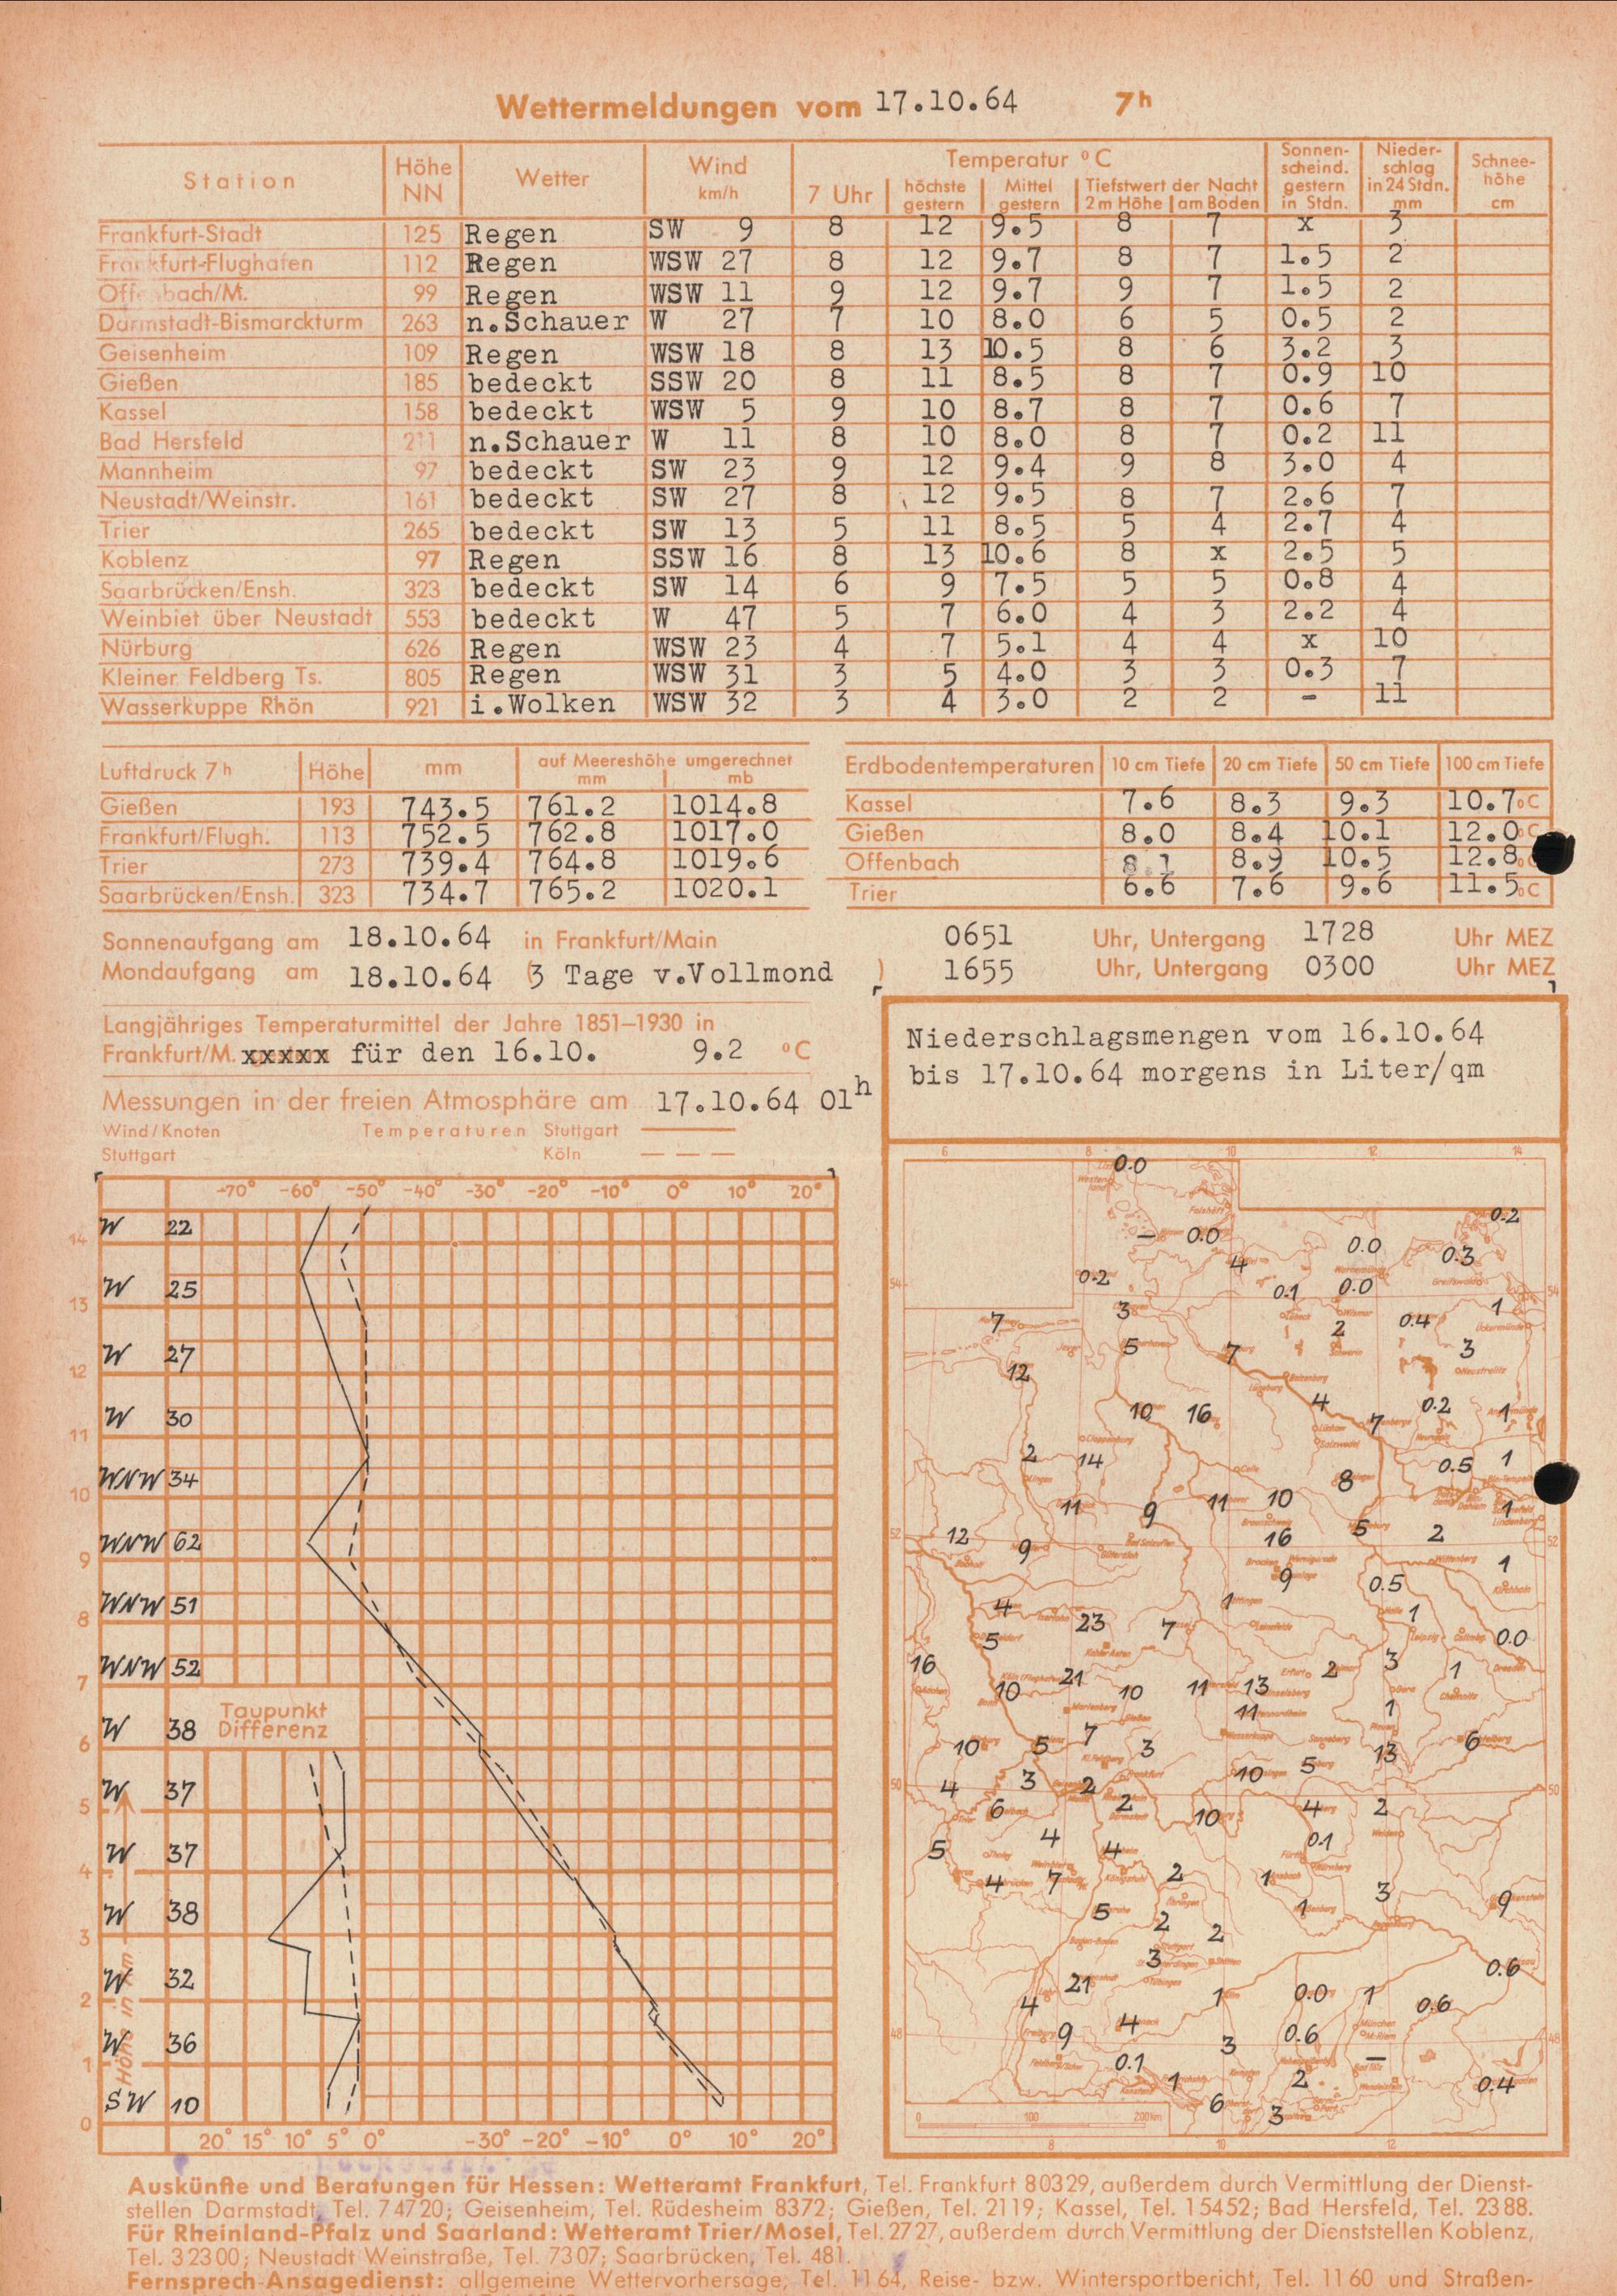 Wettermeldungen vom 17.10.64 7h
Station Höhe NN Wetter Wind km/h Temperatur °C Sonnenscheind. gestern in Stdn. Niederschlag in 24 Stdn. mm Schneehöhe cm
7 Uhr höchste gestern Mittel gestern Tiefstwert der Nacht 2 m Höhe am Boden
Frankfurt-Stadt 125 Regen SW 9 8 12 9.5 8 7 x 3
Frankfurt-Flughafen 112 Regen WSW 27 8 12 9.7 8 7 1.5 2
Offenbach/M. 99 Regen WSW 11 9 12 9.7 9 7 1.5 2
Darmstadt-Bismarckturm 263 n.Schauer W 27 7 10 8.0 6 5 0.5 2
Geisenheim 109 Regen WSW 18 8 13 10.5 8 6 3.2 3
Gießen 185 bedeckt SSW 20 8 11 8.5 8 7 0.9 10
Kassel 158 bedeckt WSW 5 9 10 8.7 8 7 0.6 7
Bad Hersfeld 211 n.Schauer W 11 8 10 8.0 8 7 0.2 11
Mannheim 97 bedeckt SW 23 9 12 9.4 9 8 3.0 4
Neustadt/Weinstr. 161 bedeckt SW 27 8 12 9.5 8 7 2.6 7
Trier 265 bedeckt SW 13 5 11 8.5 5 4 2.7 4
Koblenz 97 Regen SSW 16 8 13 10.6 8 x 2.5 5
Saarbrücken/Ensh. 323 bedeckt SW 14 6 9 7.5 5 5 0.8 4
Weinbiet über Neustadt 553 bedeckt W 47 5 7 6.0 4 3 2.2 4
Nürburg 626 Regen WSW 23 4 7 5.1 4 4 x 10
Kleiner Feldberg Ts. 805 Regen WSW 31 3 5 4.0 3 3 0.3 7
Wasserkuppe Rhön 921 i.Wolken WSW 32 3 4 3.0 2 2 - 11
Luftdruck 7h Höhe mm auf Meereshöhe umgerechnet mm mb
Gießen 193 743.5 761.2 1014.8
Frankfurt/Flugh. 113 752.5 762.8 1017.0
Trier 273 739.4 764.8 1019.6
Saarbrücken/Ensh. 323 734.7 765.2 1020.1
Erdbodentemperaturen 10 cm Tiefe 20 cm Tiefe 50 cm Tiefe 100 cm Tiefe
Kassel 7.6 8.3 9.3 10.7 °C
Gießen 8.0 8.4 10.1 12.0 °C
Offenbach 8.1 8.9 10.5 12.8
Trier 6.6 7.6 9.6 11.5 °C
Sonnenaufgang am 18.10.64 in Frankfurt/Main 0651 Uhr, Untergang 1728 Uhr MEZ
Mondaufgang am 18.10.64 (3 Tage v.Vollmond ) 1655 Uhr, Untergang 0300 Uhr MEZ
Langjähriges Temperaturmittel der Jahre 1851–1930 in
Frankfurt/M. xxxxx für den 16.10. 9.2 °C
Messungen in der freien Atmosphäre am 17.10.64 01h
Wind/Knoten Temperaturen Stuttgart
Stuttgart Köln
-70° -60° -50° -40° -30° -20° -10° 0° 10° 20°
W 22
14
W 25
13
W 27
12
W 30
11
WNW 34
10
WNW 62
9
WNW 51
8
WNW 52
7
Taupunkt
Differenz
W 38
6
W 37
5
W 37
4
W 38
3
W 32
2
W 36
1
SW 10
0
Höhe in km
20° 15° 10° 5° 0° -30° -20° -10° 0° 10° 20°
Niederschlagsmengen vom 16.10.64
bis 17.10.64 morgens in Liter/qm
6 8 10 12 14
0.0
0.2
– 0.0 0.0 0.3
4
0.2 0.1 0.0
54 54
3 1
7 0.4
2
5 7 3
12
4 0.2
10 16 7 1
2 14 0.5 1
8
11 9 11 10 1
12 16 5 2
52 52
9 9 1
0.5
4 1 1
23 7
5 0.0
16 21 2 3 1
10 10 11 13
11 1
10 5 7 3 6
13
4 3 2 10 5
50 50
6 2 10 4 2
4 0.1
5 4
4 7 2 1 3
5 1 9
2 2
3
0.6
21 1 0.0 1
4 0.6
9 4 0.6
48 48
3
0.1 –
1 2 0.4
6 3
0 100 200km
8 10 12
Auskünfte und Beratungen für Hessen: Wetteramt Frankfurt, Tel. Frankfurt 80329, außerdem durch Vermittlung der Dienst-
stellen Darmstadt, Tel. 74720; Geisenheim, Tel. Rüdesheim 8372; Gießen, Tel. 2119; Kassel, Tel. 15452; Bad Hersfeld, Tel. 2388.
Für Rheinland-Pfalz und Saarland: Wetteramt Trier/Mosel, Tel. 2727, außerdem durch Vermittlung der Dienststellen Koblenz,
Tel. 32300; Neustadt Weinstraße, Tel. 7307; Saarbrücken, Tel. 481.
Fernsprech-Ansagedienst: allgemeine Wettervorhersage, Tel. 1164, Reise- bzw. Wintersportbericht, Tel. 1160 und Straßen-